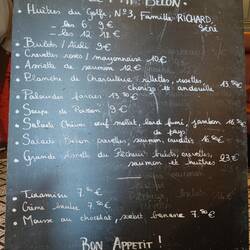 BELON.
- Huîtres du Golfe, N°3, Famille RICHARD,
- les 6 9€ Séné
- les 12 18€
- Bulots / Aïoli 9€
- Crevettes roses / mayonnaise 10€
- Assiette de saumon 12€
- Planche de Charcuterie: rillettes, rosettes,
chorizo et andouille 13,50€
- Palourdes farcies 13,50€
- Soupe de Poisson 9€
- Salade Chèvre oeuf mollet, lard fumé, jambon
de pays 16,50€
- Salade Belon crevettes, saumon, crudités 16,50€
- Grande Assiette du Pêcheur: bulots, crevettes,
saumon et huîtres 23€
- Tiramisu 7,50€
- Crème brulée 7,50€
- Mousse au chocolat, banane 7,50€
BON APPETIT !